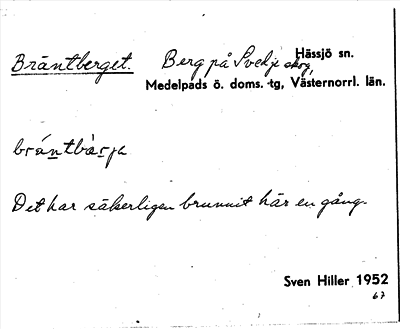 Bräntberget. Berg på Svedje skog, Hässjö sn.
Medelpads ö. doms. -tg, Västernorrl. län.
Det har säkerligen brunnit här en gång.
Sven Hiller 1952
67